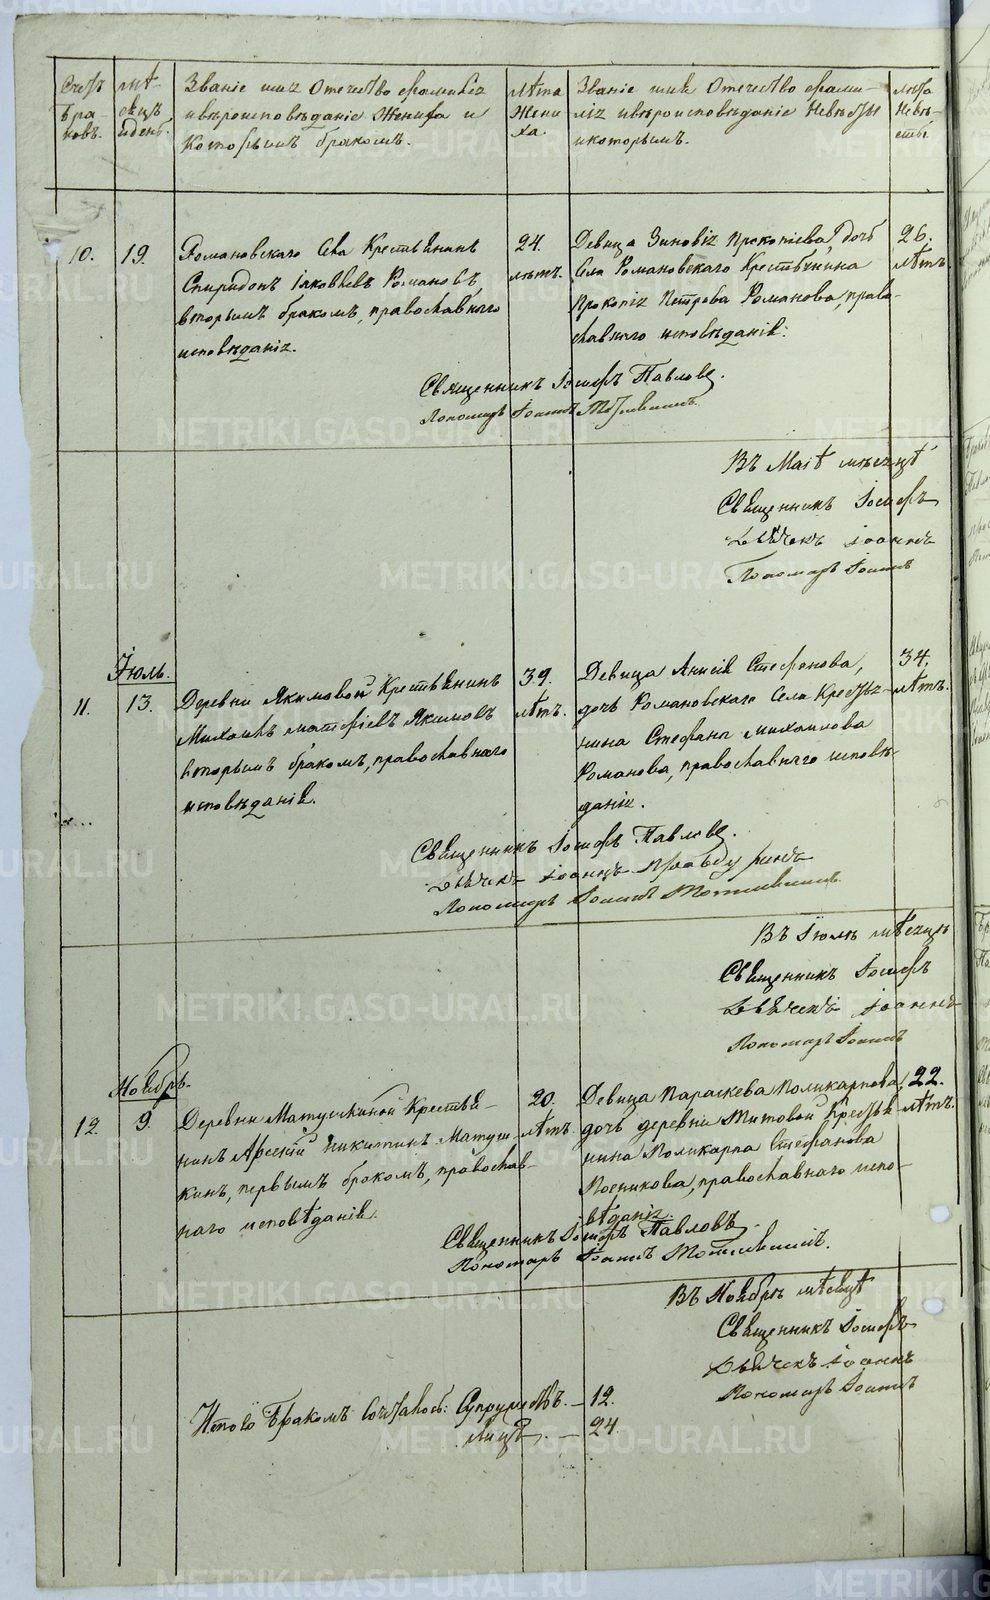 Счетъ
бра-
ковъ.
мѣ-
сяцъ
и день.
Званіе имя Отечество фамилія
и вѣроисповѣданіе Жениха и
которымъ бракомъ.
лѣта
Жени
ха.
Званіе имя Отечество фами-
лія и вѣроисповѣданіе Невѣсты
и которымъ.
лѣта
Невѣ-
сты.
10.
19.
Романовскаго Села Крестьянинъ
Спиридонъ Іаковлевъ Романовъ,
вторымъ бракомъ, православнаго
исповѣданія.
24.
лѣтъ.
Девица Зиновія Прокопіева, дочь
Села Романовскаго Крестьянина
Прокопія Петрова Романова, право-
славнаго исповѣданія.
26.
лѣтъ.
Священникъ Іосифъ Павловъ.
Пономарь Іоаннъ
Въ Маіѣ месяцѣ
Священникъ Іосифъ
Дьячекъ Іоаннъ
Пономарь Іоаннъ
Іюль.
11.
13.
Деревни Якимовой Крестьянинъ
Михаилъ Матфіевъ Якимовъ
вторымъ бракомъ, православнаго
исповѣданія.
39.
лѣтъ.
Девица Анисія Стефанова,
дочь Романовскаго Села Крестья-
нина Стефана Михаилова
Романова, православнаго исповѣ-
данія.
34.
лѣтъ.
Священникъ Іосифъ Павловъ.
Дьячекъ Іоаннъ
Пономарь Іоаннъ
Въ Іюлѣ мѣсяцѣ
Священникъ Іосифъ
Дьячекъ Іоаннъ
Пономарь Іоаннъ
Ноябрь.
12.
9.
Деревни Матушкиной Крестья-
нинъ Арсеній Никитинъ Матуш-
кинъ, первымъ бракомъ, православ-
наго исповѣданія.
20.
лѣтъ
Девица Параскева Поликарпова,
дочь деревни Титовой Крестья-
нина Поликарпа Стефанова
православнаго испо-
вѣданія.
22.
лѣтъ.
Священникъ Іосифъ Павловъ.
Пономарь Іоаннъ
Въ Ноябрѣ мѣсяцѣ
Священникъ Іосифъ
Дьячекъ Іоаннъ
Пономарь Іоаннъ
Итого Бракомъ Сочталось: Супружествъ. — 12.
Лицъ. — 24.
METRIKI.GASO-URAL.RU